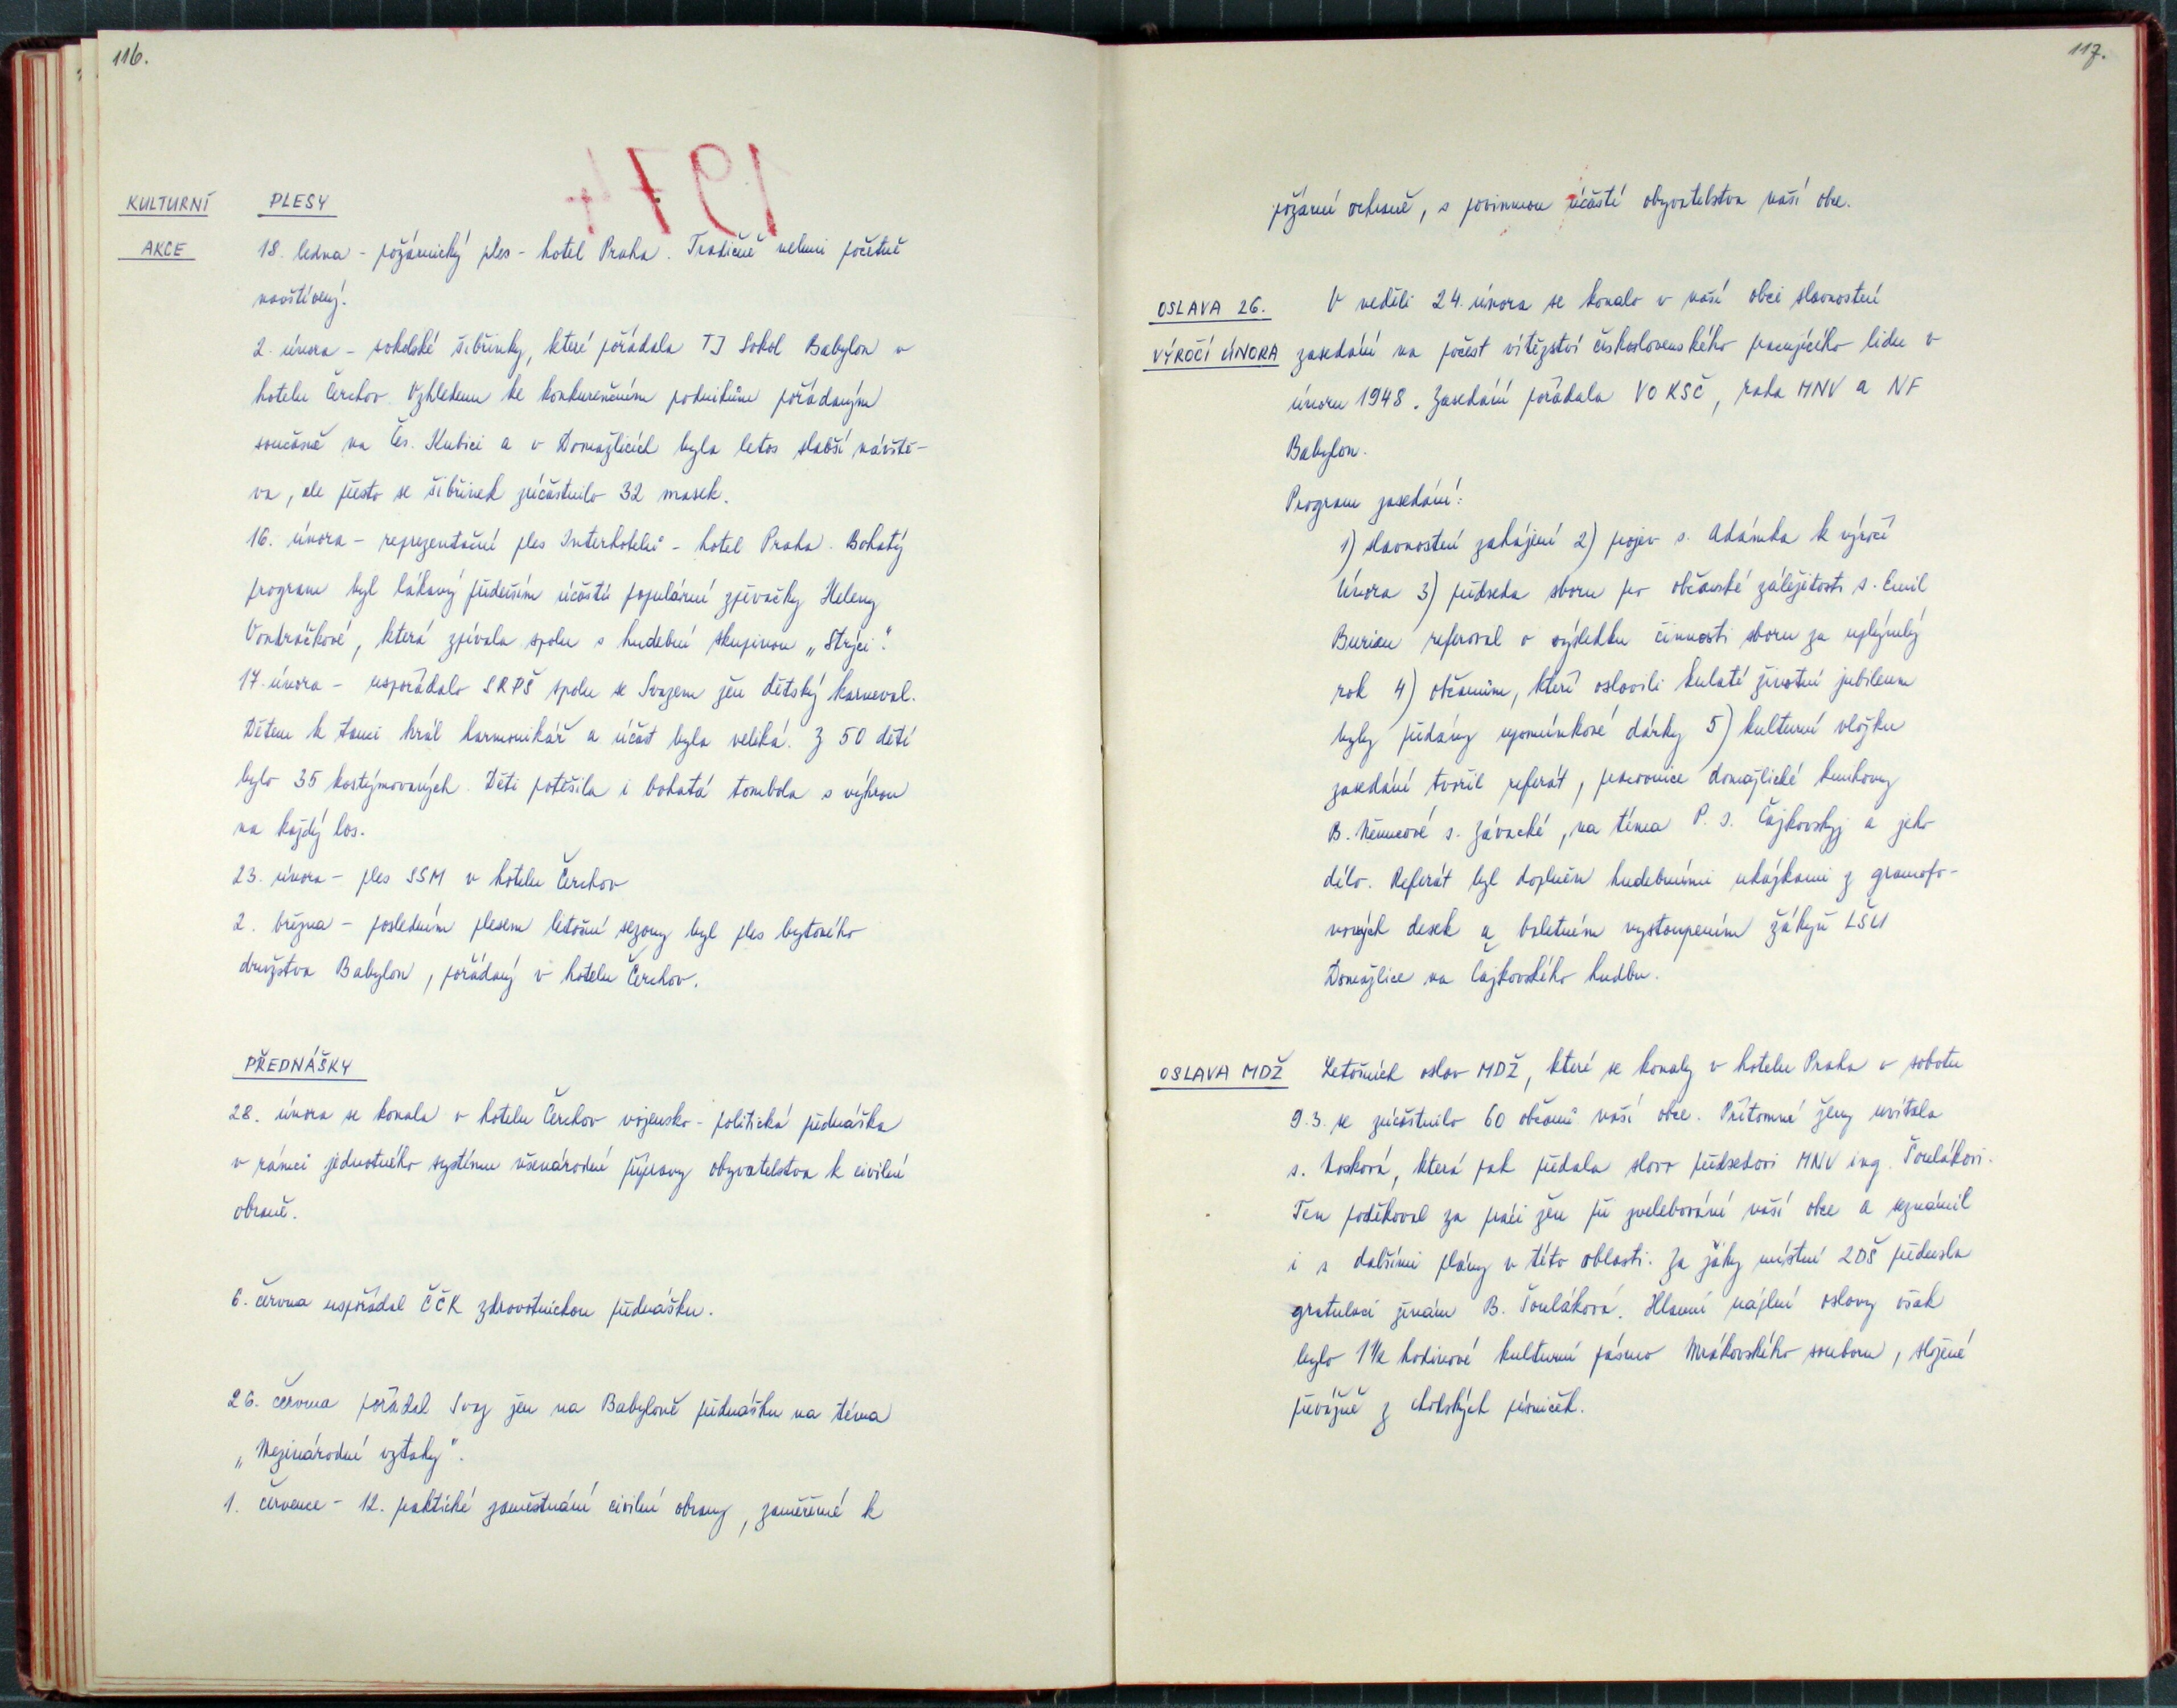 116.
1974
KULTURNÍ
AKCE
PLESY
18. ledna - požárnický ples - hotel Praha. Tradičně velmi početně
navštívený.
2. února - sokolské šibřinky, které pořádala TJ Sokol Babylon v
hotelu Čerchov. Vzhledem ke konkurenčním podnikům pořádaným
současně na Čes. Kubici a v Domažlicích byla letos slabší návště-
va, ale přesto se šibřinek zúčastnilo 32 masek.
16. února - reprezentační ples Interhotelů - hotel Praha. Bohatý
program byl lákavý především účastí populární zpěvačky Heleny
Vondráčkové, která zpívala spolu s hudební skupinou „Strýci".
17. února - uspořádalo SRPŠ spolu se Svazem žen dětský karneval.
Dětem k tanci hrál harmonikář a účast byla veliká. Z 50 dětí
bylo 35 kostýmovaných. Děti potěšila i bohatá tombola s výhrou
na každý los.
23. února - ples SSM v hotelu Čerchov
2. března - posledním plesem letošní sezony byl ples bytového
družstva Babylon, pořádaný v hotelu Čerchov.
PŘEDNÁŠKY
28. února se konala v hotelu Čerchov vojensko-politická přednáška
v rámci jednotného systému všenárodní přípravy obyvatelstva k civilní
obraně.
6. června uspořádal ČČK zdravotnickou přednášku.
26. června pořádal Svaz žen na Babyloně přednášku na téma
„Mezinárodní vztahy".
1. července - 12. praktické zaměstnání civilní obrany, zaměřené k
117.
požární ochraně, s povinnou účastí obyvatelstva naší obce.
OSLAVA 26.
VÝROČÍ ÚNORA
V neděli 24. února se konalo v naší obci slavnostní
zasedání na počest vítězství československého pracujícího lidu v
únoru 1948. Zasedání pořádala VO KSČ, rada MNV a NF
Babylon.
Program zasedání:
1) slavnostní zahájení 2) projev s. Adámka k výročí
Února 3) předseda sboru pro občanské záležitosti s. Emil
Burian referoval o výsledku činnosti sboru za uplynulý
rok 4) občanům, kteří oslavili kulaté životní jubileum
byly předány upomínkové dárky 5) kulturní vložku
zasedání tvořil referát, pracovnice domažlické knihovny
B. Němcové s. Závacké, na téma P. I. Čajkovskyj a jeho
dílo. Referát byl doplněn hudebními ukázkami z gramofo-
nových desek a baletním vystoupením žákyň LŠU
Domažlice na Čajkovského hudbu.
OSLAVA MDŽ
Letošních oslav MDŽ, které se konaly v hotelu Praha v sobotu
9.3. se zúčastnilo 60 občanů naší obce. Přítomné ženy uvítala
s. Nosková, která pak předala slovo předsedovi MNV ing. Šoulákovi.
Ten poděkoval za práci žen při zvelebování naší obce a seznámil
i s dalšími plány v této oblasti. Za žáky místní ZDŠ přednesla
gratulaci ženám B. Šouláková. Hlavní náplní oslavy však
bylo 1 1/2 hodinové kulturní pásmo Mrákovského souboru, složené
převážně z chodských písniček.